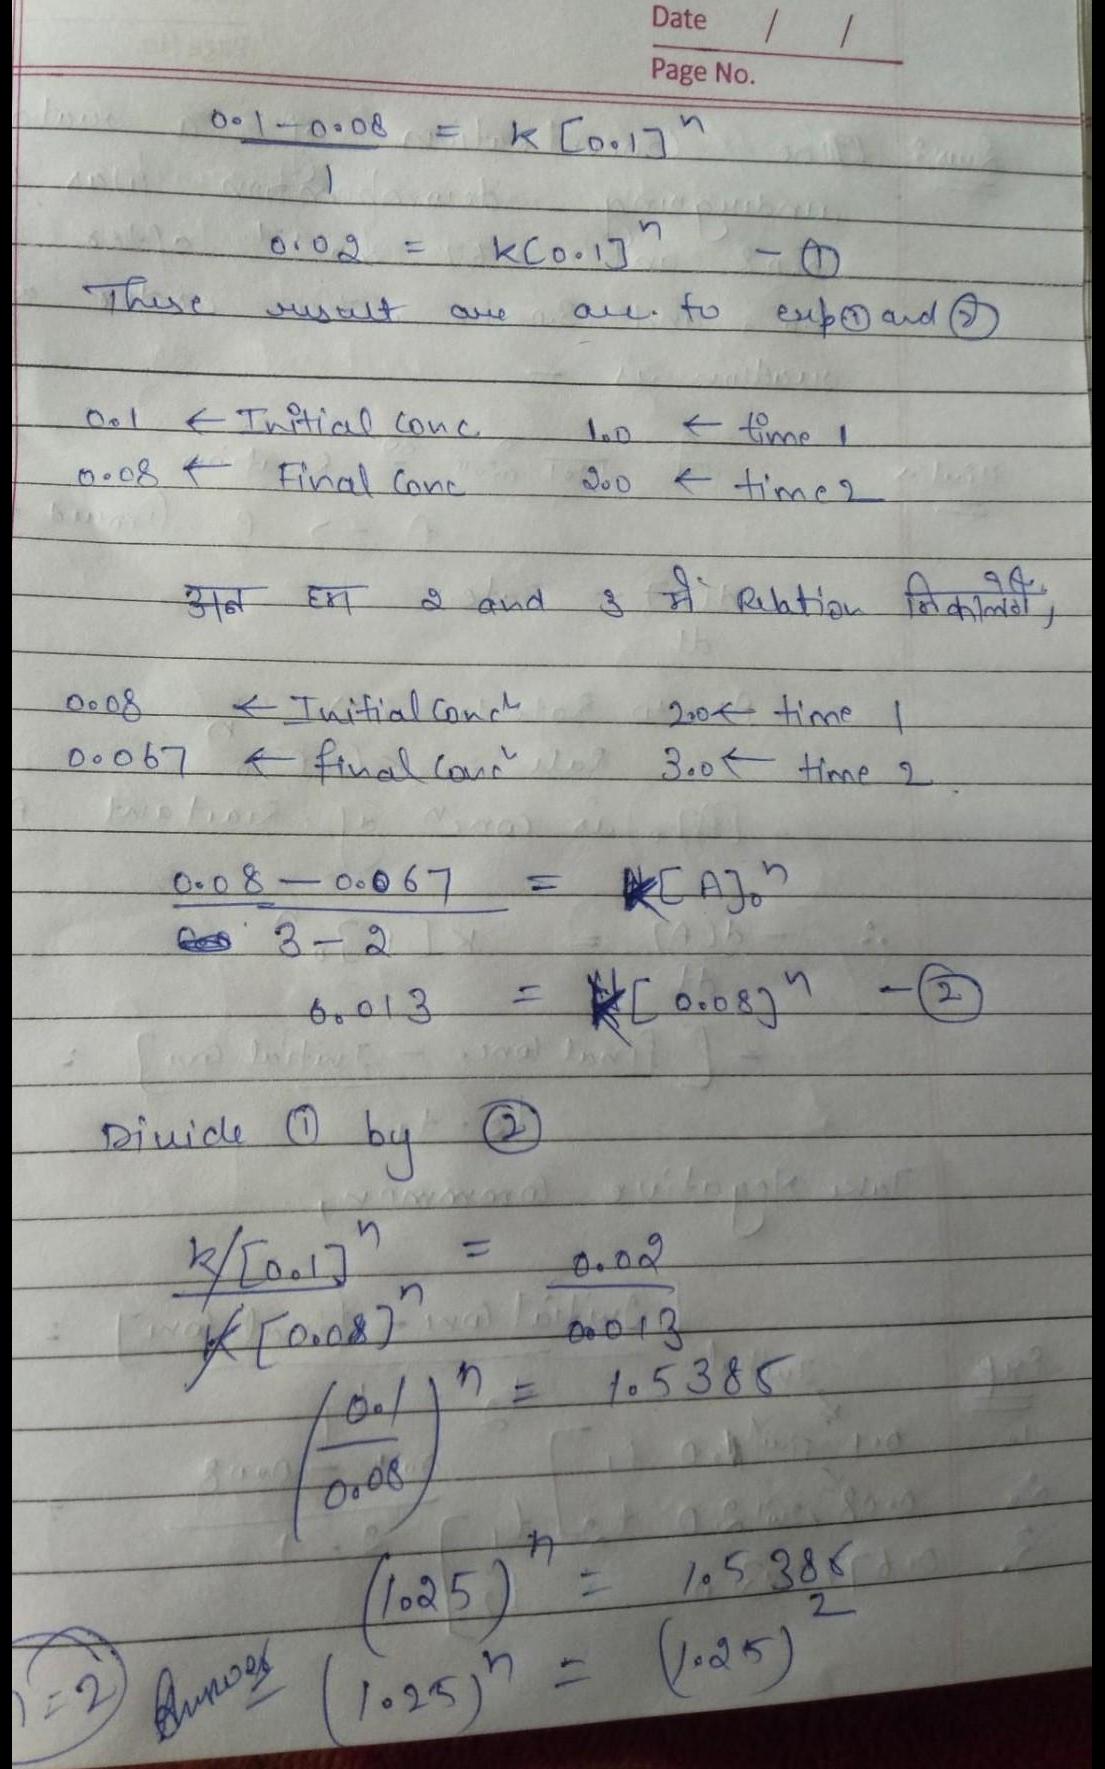 Date / /
Page No.
0.1-0.08 = k[0.1]^n
1
0.02 = k[0.1]^n - ①
These result are acc. to exp ① and ②
0.1 ← Initial conc 1.0 ← time 1
0.08 ← Final Conc 2.0 ← time 2
अब हम 2 and 3 में Relation निकालेंगे,
0.08 ← Initial conc^n 2.0 ← time 1
0.067 ← final conc^n 3.0 ← time 2
0.08 - 0.067 = k[A]₀^n
3-2
0.013 = k[0.08]^n - ②
Divide ① by ②
k[0.1]^n = 0.02
k[0.08]^n 0.013
(0.1)^n = 1.5385
0.08
(1.25)^n = 1.5385
(1.25)^n = (1.25)^2
n=2 Answer